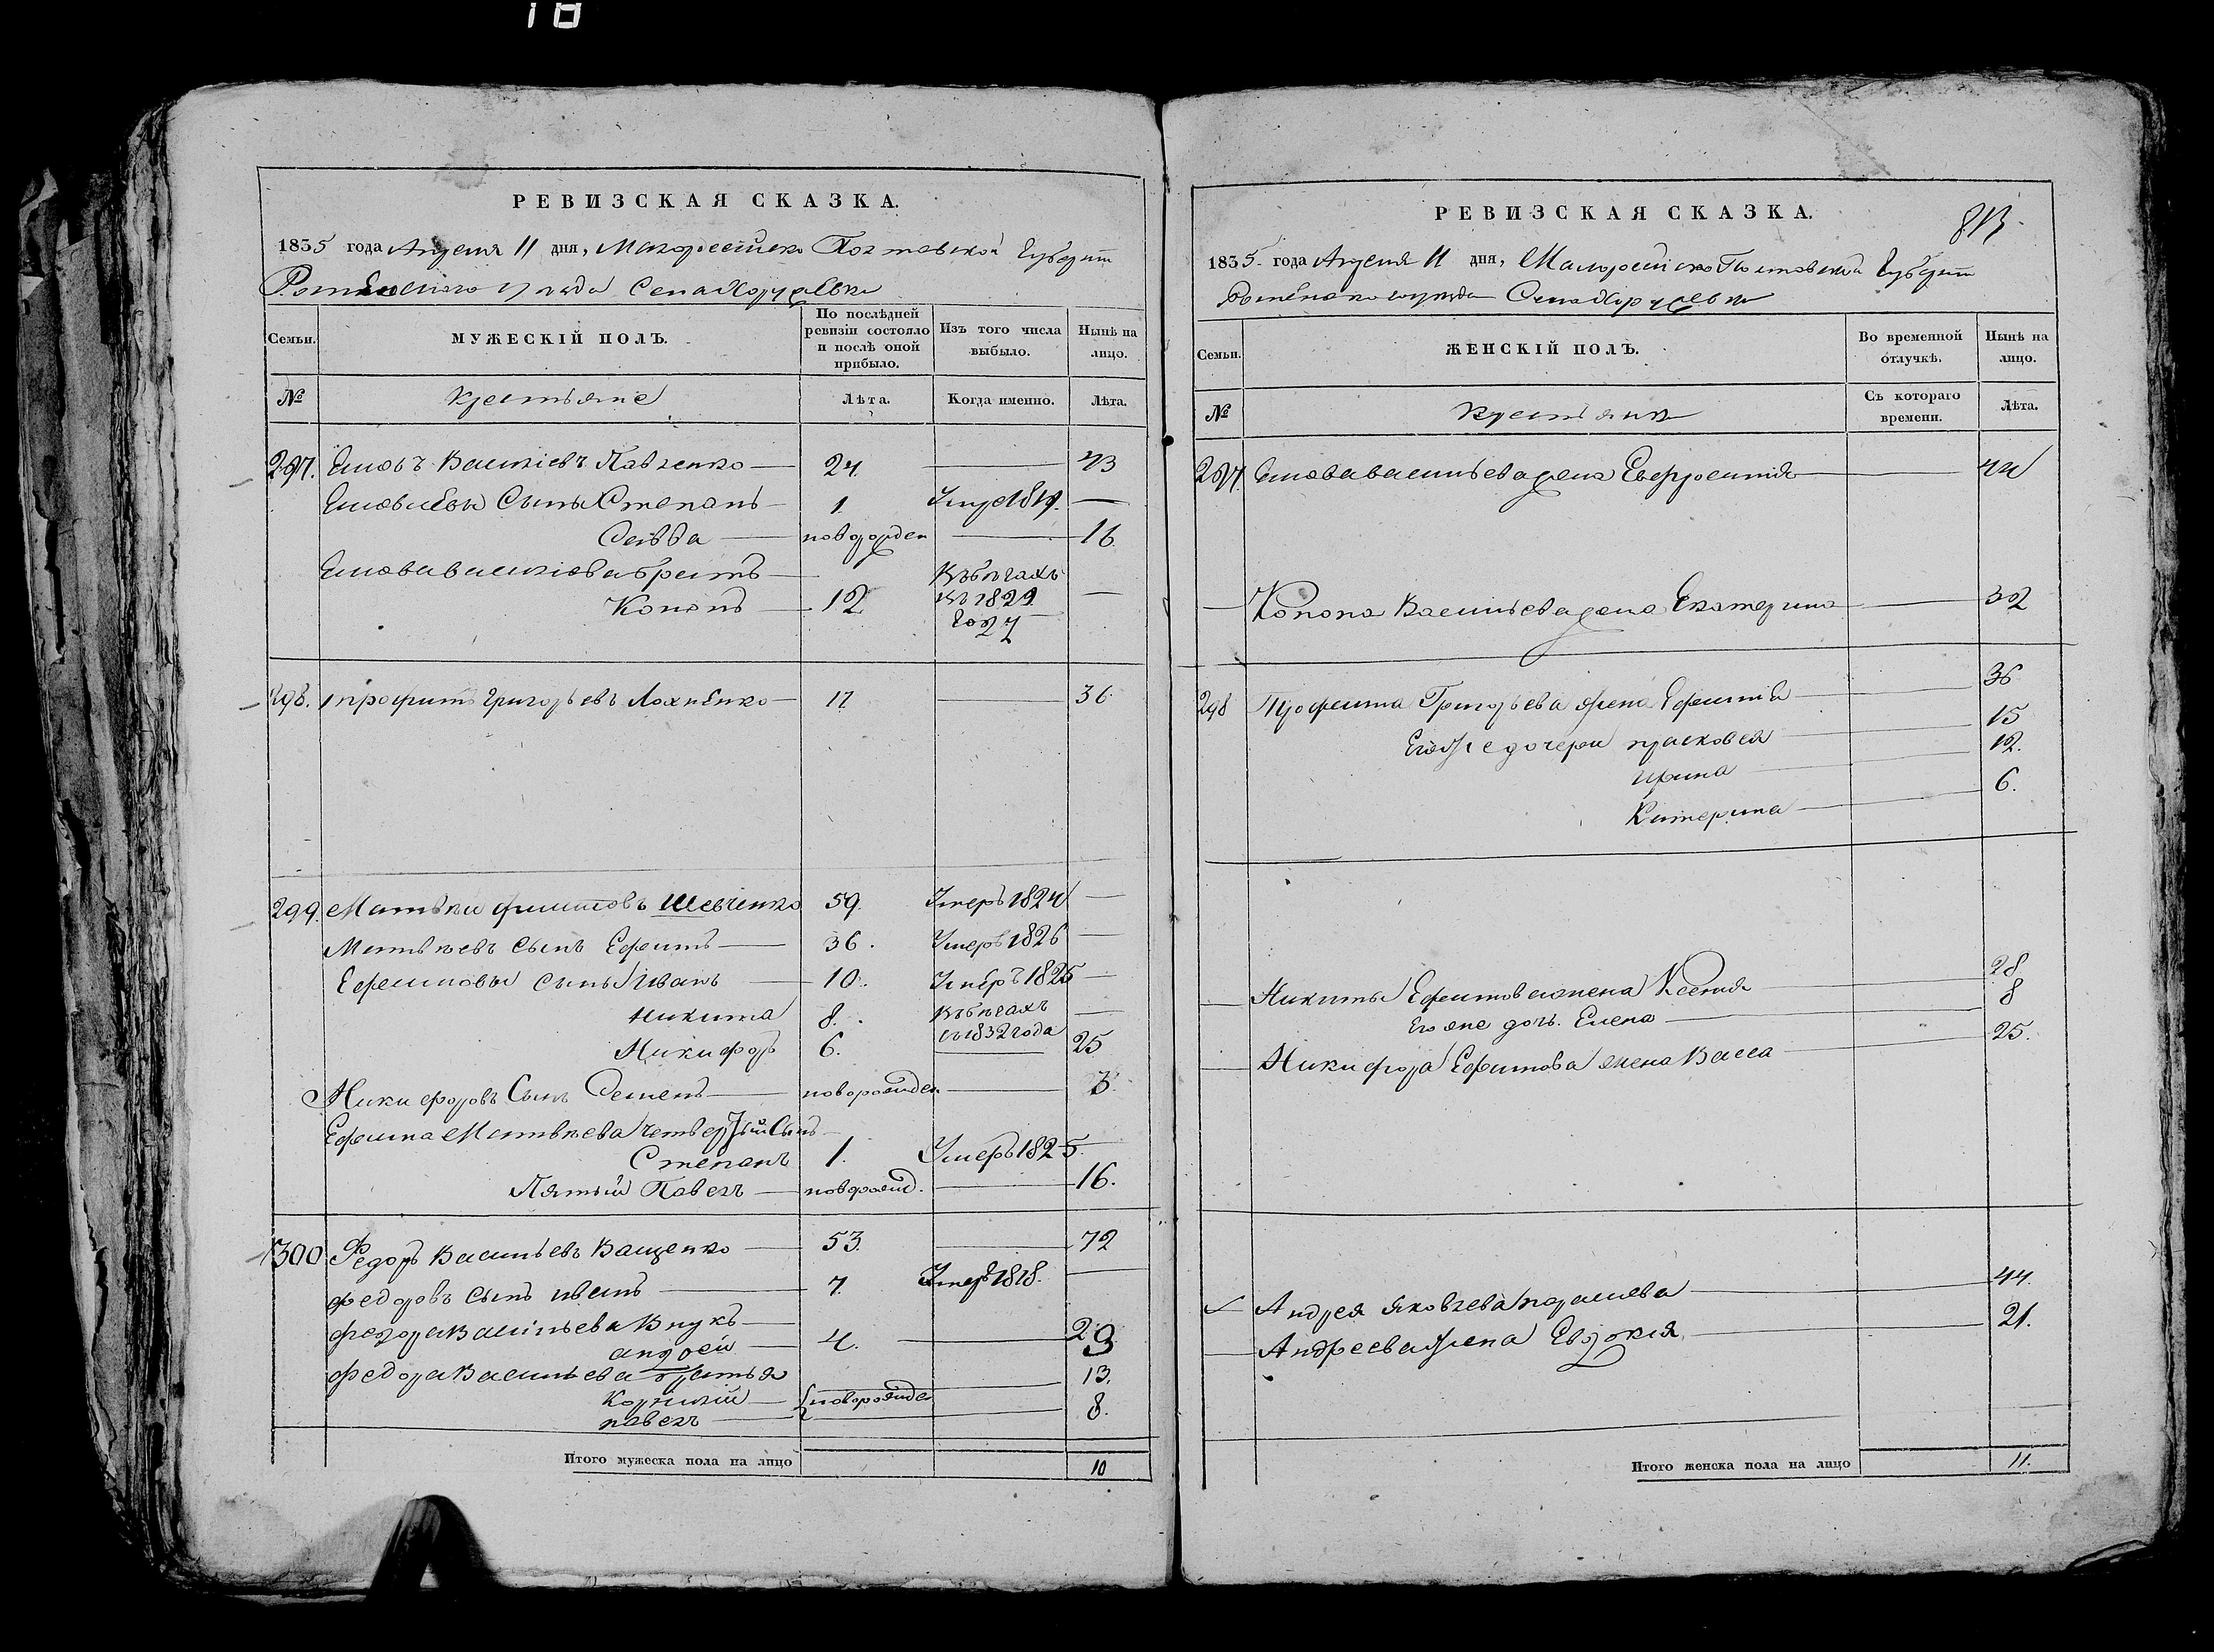 18
РЕВИЗСКАЯ СКАЗКА.
1835 года Апреля 11 дня, Малоросійско Полтавской Губерніи
Роменского уезда Села Хоружевки
Семьи.
МУЖЕСКІЙ ПОЛЪ.
По послѣдней ревизіи состояло и послѣ оной прибыло.
Изъ того числа выбыло.
Нынѣ на лицо.
№
Крестьяне
Лѣта.
Когда именно.
Лѣта.
297. Васильевъ Павленко 24. 43
Сынъ Степанъ 1. 1819.
новорожден 16.
братъ
Въ бегахъ
Кононъ 12. въ 1829
году
298. трофимъ григорьевъ Лохненко 17 36.
299. Матвей филиповъ Шевченко 59. Умеръ 1824
Матвеевъ сынъ Ефимъ 36. Умеръ 1826
Ефимовы сыны Иванъ 10. Умеръ 1825
Никита 8. Въ бегахъ
съ 1832 года
Никифоръ 6. 25
Никифоровъ Сынъ Семенъ новорожден 3.
Ефима Матвеева четвертый Сынъ
Степанъ 1. Умеръ 1825.
Пятый Павелъ новорожд. 16.
300 Федоръ Васильевъ Ващенко 53. 72
федоровъ сынъ иванъ 7. Умеръ 1818.
федора Васильева Внукъ
андрей 4. 23
федора Васильева братья
Корнилий новорожден 13.
павелъ 8.
Итого мужеска пола на лицо 10
РЕВИЗСКАЯ СКАЗКА.
813.
1835. года Апреля 11 дня, Малоросійско Полтавской Губерніи
Роменского уезда Села Хоружевки
Семьи.
ЖЕНСКІЙ ПОЛЪ.
Во временной отлучкѣ.
Нынѣ на лицо.
№
Крестьянки
Съ котораго времени.
Лѣта.
297. васильева жена Евфросинія 44
Конона Васильева жена Екатерина 32
298 Трофима Григорьева жена Ефимія 36
Его же дочери прасковея 15
ирина 12.
Катерина 6.
Никиты Ефимова жена Ксенія 28
Его же дочь. Елена 8
Никифора Ефимова жена Васса 25.
Андрея Яковлева 44.
Андреева жена Евдокія 21.
Итого женска пола на лицо 11.